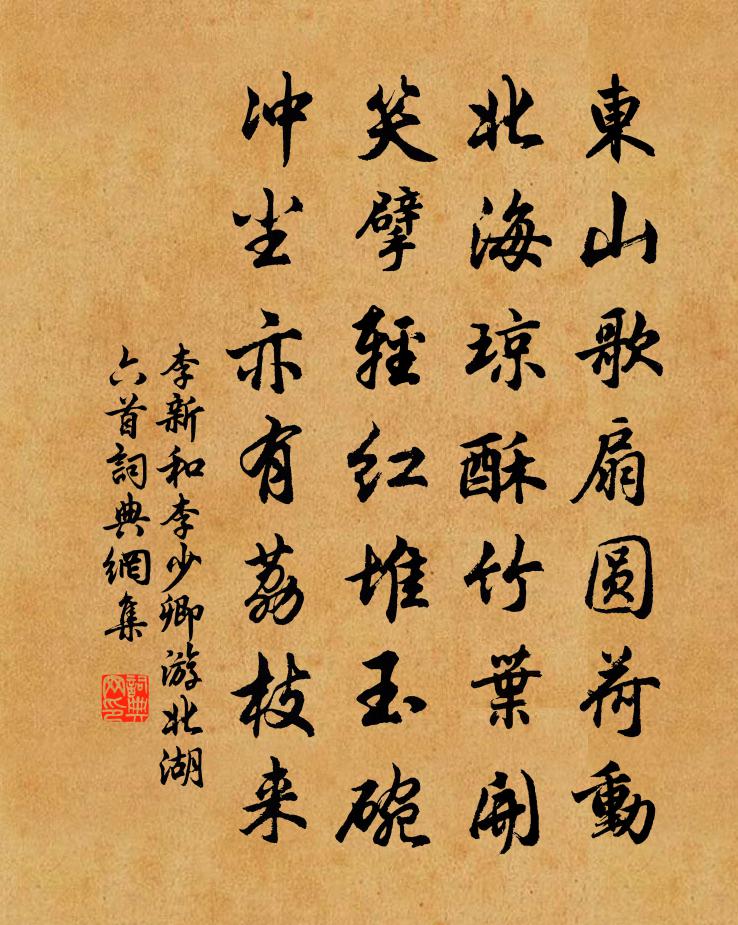 東山歌扇圆荷動
北海琼酥竹葉開
笑擘輕红堆玉碗
冲尘亦有荔枝来
李新和李少卿游北湖
六首詞典網集
詞典网印